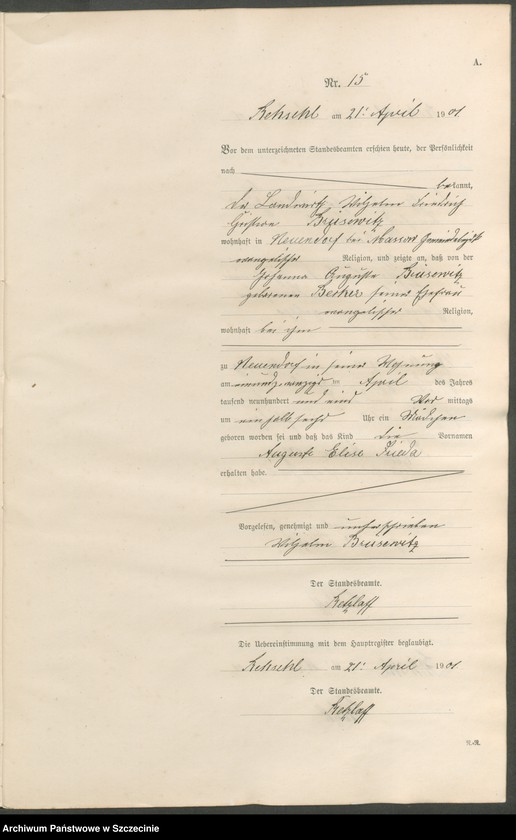 A.
Nr. 15
am 21. April 1901.
Vor dem unterzeichneten Standesbeamten erschien heute, der Persönlichkeit
nach
bekannt,
der Landwirth Wilhelm Friedrich
Gustav Brüsewitz
wohnhaft in Neuendorf bei Massow
evangelischer Religion, und zeigte an, daß von der
Johanna Auguste Brüsewitz
geborenen Becker seiner Ehefrau
evangelischer Religion,
wohnhaft bei ihm
zu Neuendorf in seiner Wohnung
am April des Jahres
tausend neunhundert und eins Vor mittags
um ein halb sechs Uhr ein Mädchen
geboren worden sei und daß das Kind die Vornamen
Auguste Elise Frieda
erhalten habe.
Vorgelesen, genehmigt und unterschrieben
Wilhelm Brüsewitz
Der Standesbeamte.
Die Uebereinstimmung mit dem Hauptregister beglaubigt.
am 21. April 1901
Der Standesbeamte.
Archiwum Państwowe w Szczecinie